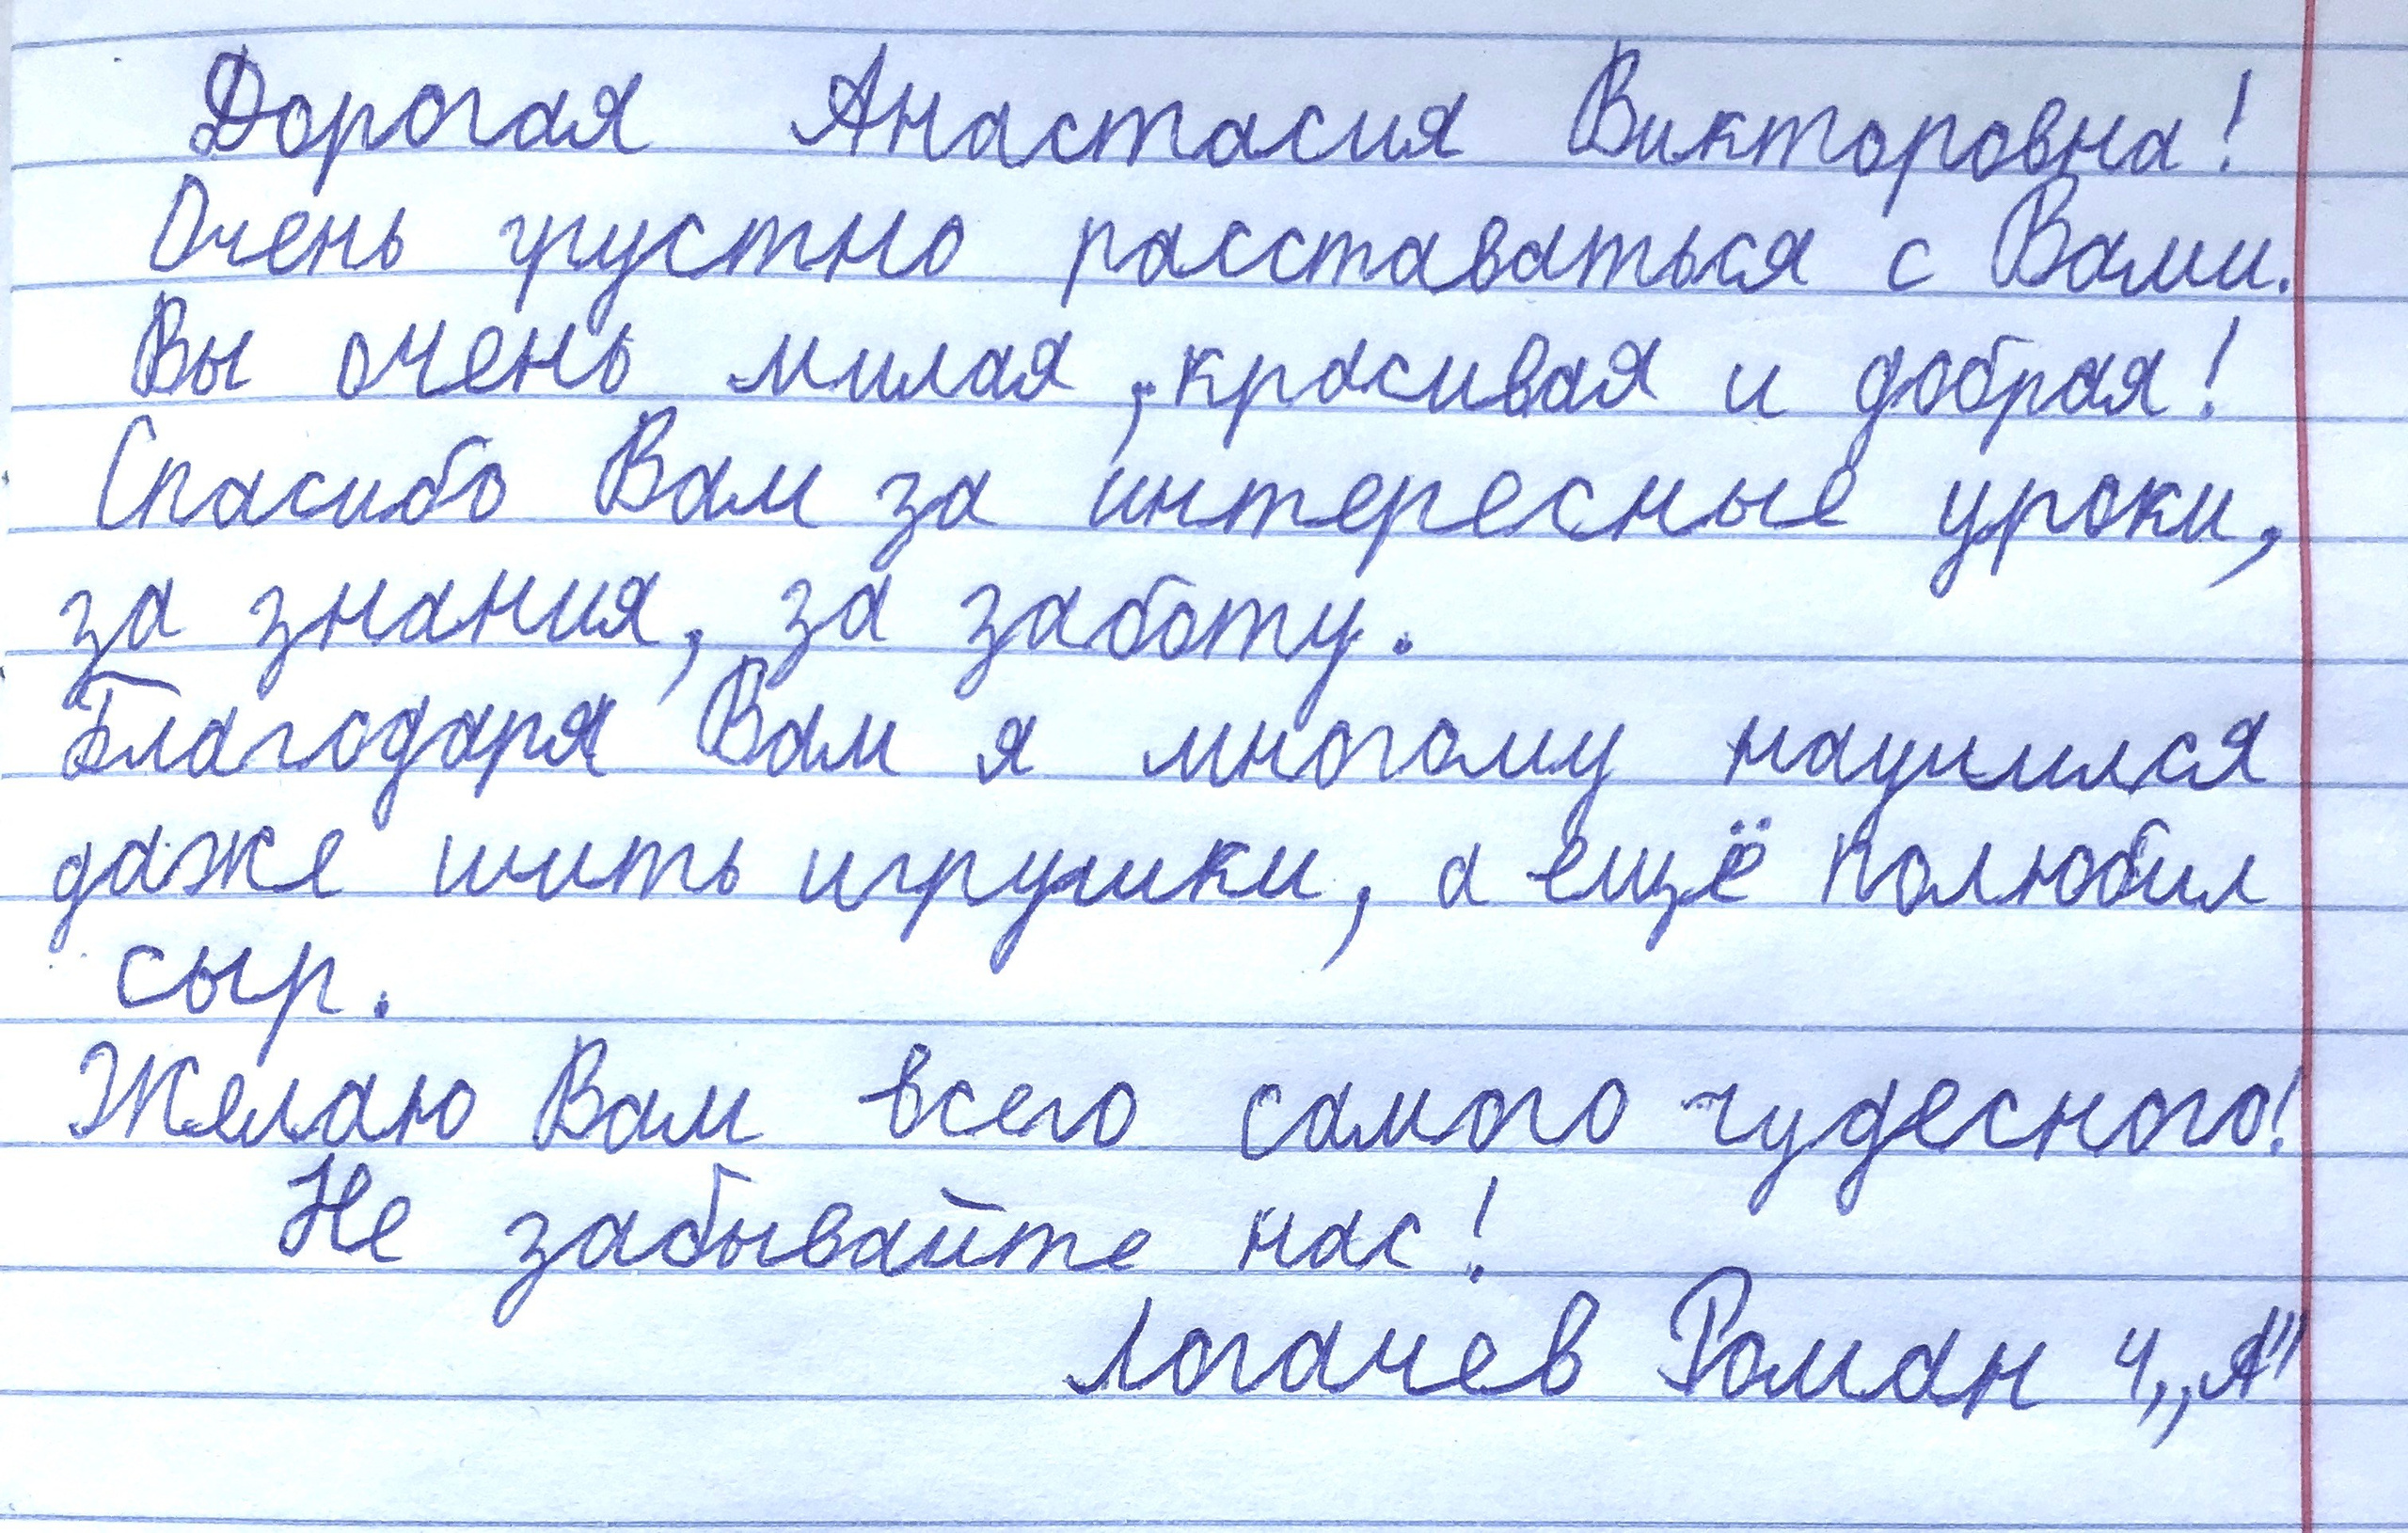 Дорогая Анастасия Викторовна!
Очень грустно расставаться с Вами.
Вы очень милая, красивая и добрая!
Спасибо Вам за интересные уроки,
за знания, за заботу.
Благодаря Вам я многому научился
даже шить игрушки, а ещё полюбил
сыр.
Желаю Вам всего самого чудесного!
Не забывайте нас!
Логачев Роман 4 „А"